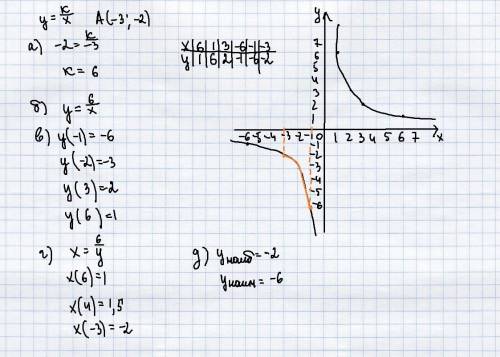 y = к/x   A(-3; -2)
а) -2 = к/-3
к = 6
x | 6 | 1 | 3 | -6 | -1 | -3
y | 1 | 6 | 2 | -1 | -6 | -2
б) y = 6/x
в) y(-1) = -6
y(-2) = -3
y(3) = 2
y(6) = 1
г) x = 6/y
x(6) = 1
x(4) = 1,5
x(-3) = -2
д) y наиб = -2
y наим = -6
y
7
6
5
4
3
2
1
-6 -5 -4 -3 -2 -1 0 1 2 3 4 5 6 7 x
-1
-2
-3
-4
-5
-6